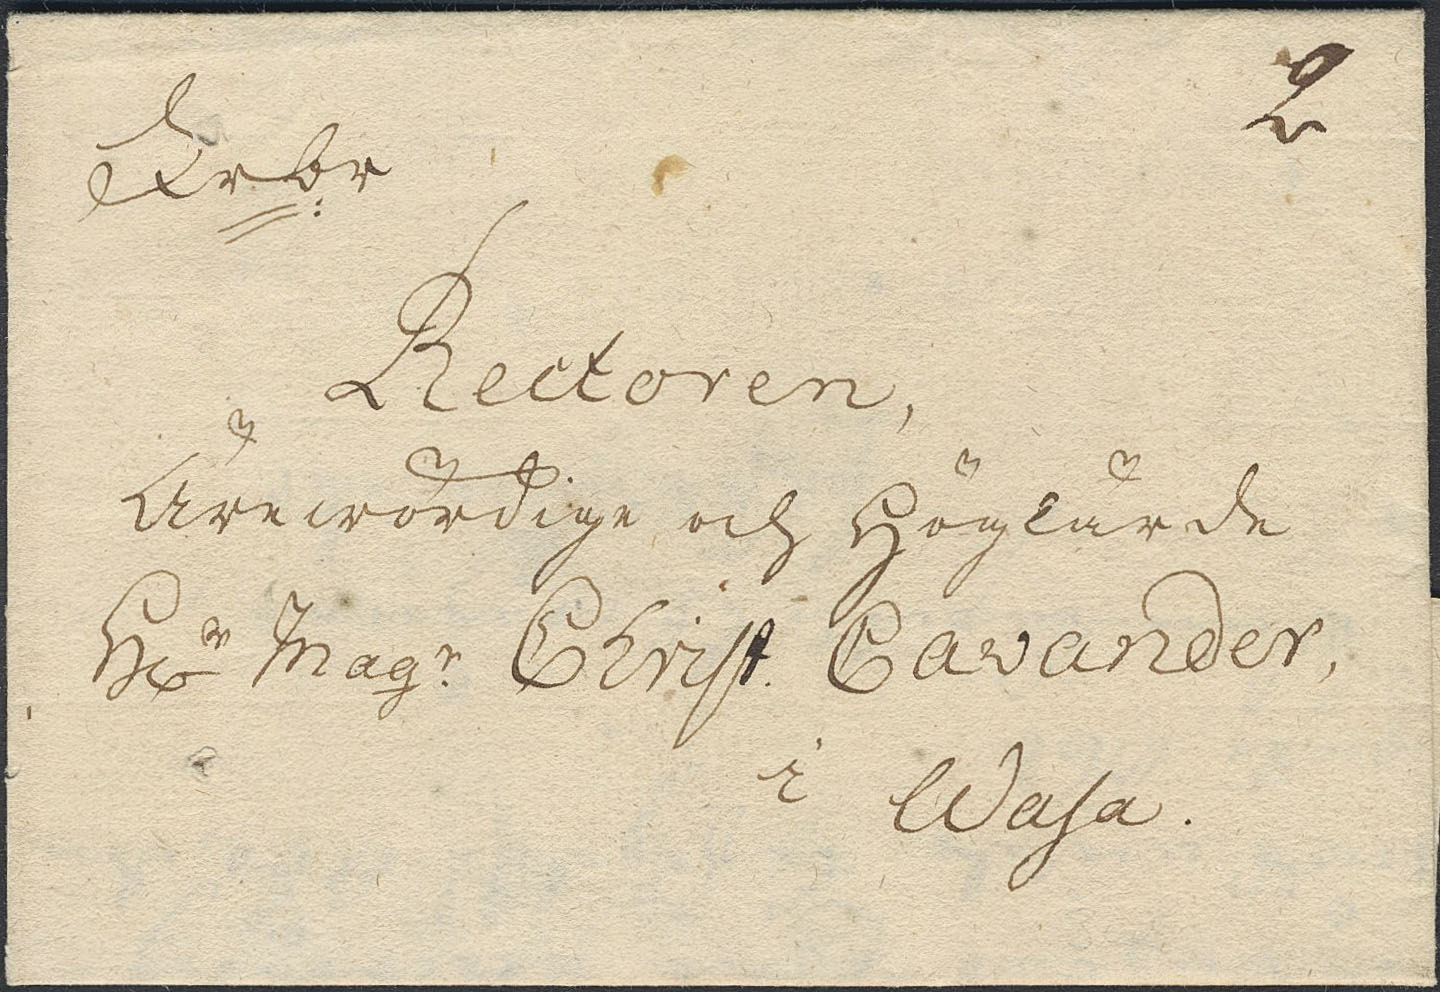 2
Rectoren,
Ärewördige och Höglärde
Hr Magr Christ. Cavander,
i Wasa.